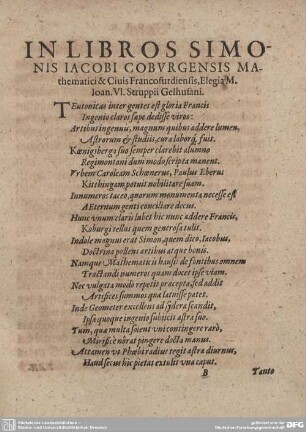 IN LIBROS SIMO-
NIS IACOBI COBVRGENSIS MA-
thematici & Ciuis Francofurdiensis, Elegia M.
Ioan. VI. Struppii Gelhusani.
TEutonicas inter gentes est gloria Francis
Ingenio claros sæpe dedisse viros:
Artibus ingenuis, magnum quibus addere lumen,
Astrorum & studiis, cura labórq; fuit.
Kœnigsberga suo semper clarebit alumno
Regimontani dum modo scripta manent.
Vrbem Caroleam Schœnerus, Paulus Eberus
Kitthingam potuit nobilitare suam.
Innumeros taceo, quorum monumenta necesse est
AEternum genti conciliare decus.
Hunc vnum claris lubet hîc nunc addere Francis,
Koburgi tellus quem generosa tulit.
Indole magnus erat Simon, quem dico, Iacobus,
Doctrina pollens artibus atque bonis.
Namque Mathematicis hausit de fontibus omnem
Tractandi numeros quam docet ipse viam.
Nec vulgata modo repetit præcepta, sed addit
Artifices summos quæ latuisse patet.
Inde Geometer excellens ad sydera scandit,
Ipsaque quoque ingenio subiicit astra suo.
Tum, qua multa solent vni contingere rarò,
Mirificè nôrat pingere docta manus.
Attamen vt Phœbi radius tegit astra diurnus,
Haud secus hic pietas extulit vna caput.
B
Tanto